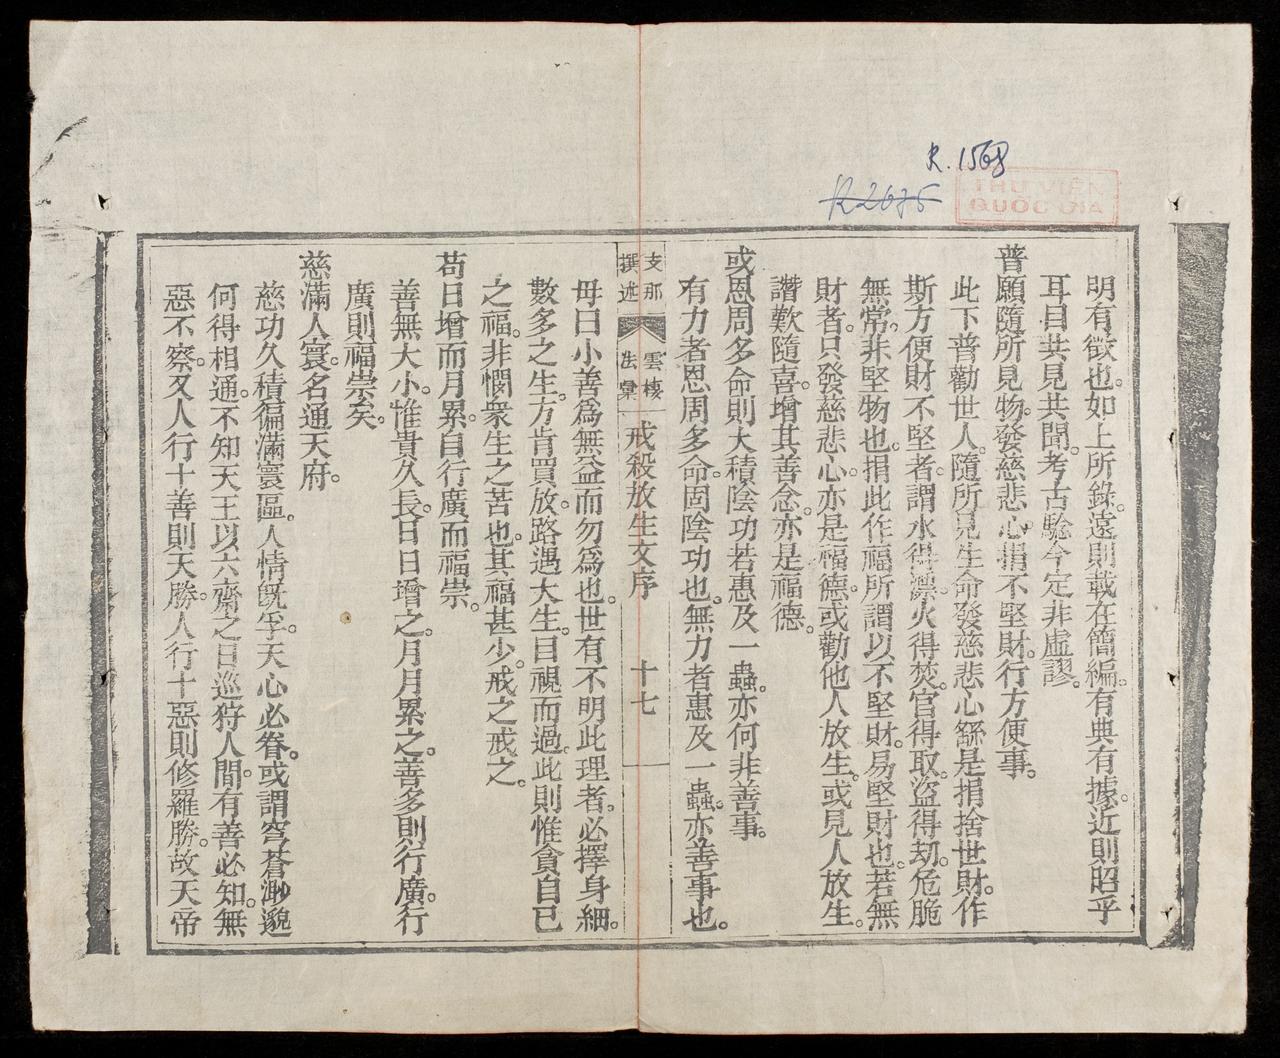 R.1568
R2675
THƯ VIỆN
QUỐC GIA
明有徵也。如上所錄。遠則載在簡編。有典有據。近則昭乎
耳目共見共聞。考古騐今定非虛謬。
普願隨所見物。發慈悲心。捐不堅財。行方便事。
此下普勸世人。隨所見生命發慈悲心繇是捐捨世財。作
斯方便財不堅者。謂水得漂。火得焚。官得取。盜得劫。危脆
無常。非堅物也。捐此作福所謂以不堅財。易堅財也。若無
財者。只發慈悲心。亦是福德。或勸他人放生。或見人放生。
讚歎隨喜。增其善念。亦是福德。
或恩周多命則大積陰功若惠及一蟲。亦何非善事。
有力者恩周多命。固陰功也。無力者惠及一蟲。亦善事也。
支那
撰述
雲棲
法彙
戒殺放生文序
十七
毋曰小善爲無益而勿爲也。世有不明此理者。必擇身細。
數多之生。方肯買放。路遇大生。目視而過。此則惟貪自已
之福。非憫衆生之苦也。其福甚少。戒之戒之。
苟日增而月累。自行廣而福崇。
善無大小。惟貴久長。日日增之。月月累之。善多則行廣。行
廣則福崇矣。
慈滿人寰。名通天府。
慈功久積徧滿寰區。人情旣孚。天心必眷。或謂穹蒼渺邈
何得相通。不知天王以六齋之日巡狩人間。有善必知。無
惡不察。又人行十善則天勝。人行十惡則修羅勝。故天帝